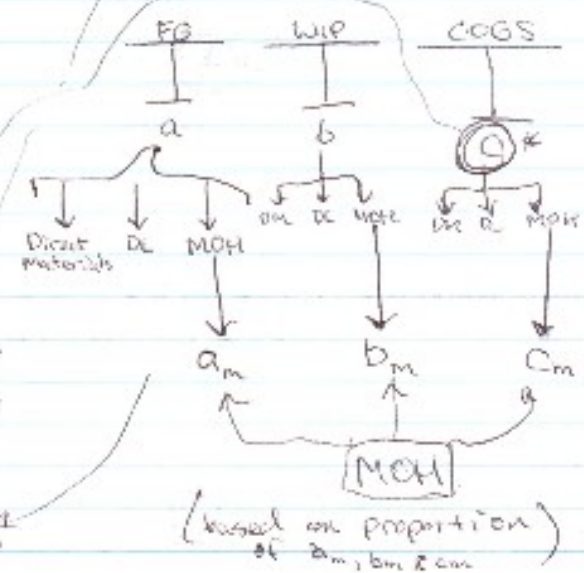 FG WIP COGS
a b C *
Direct Materials DL MOH
DM DL MOH
DM DL MOH
a_m b_m C_m
MOH
(based on proportion
of a_m, b_m & c_m)